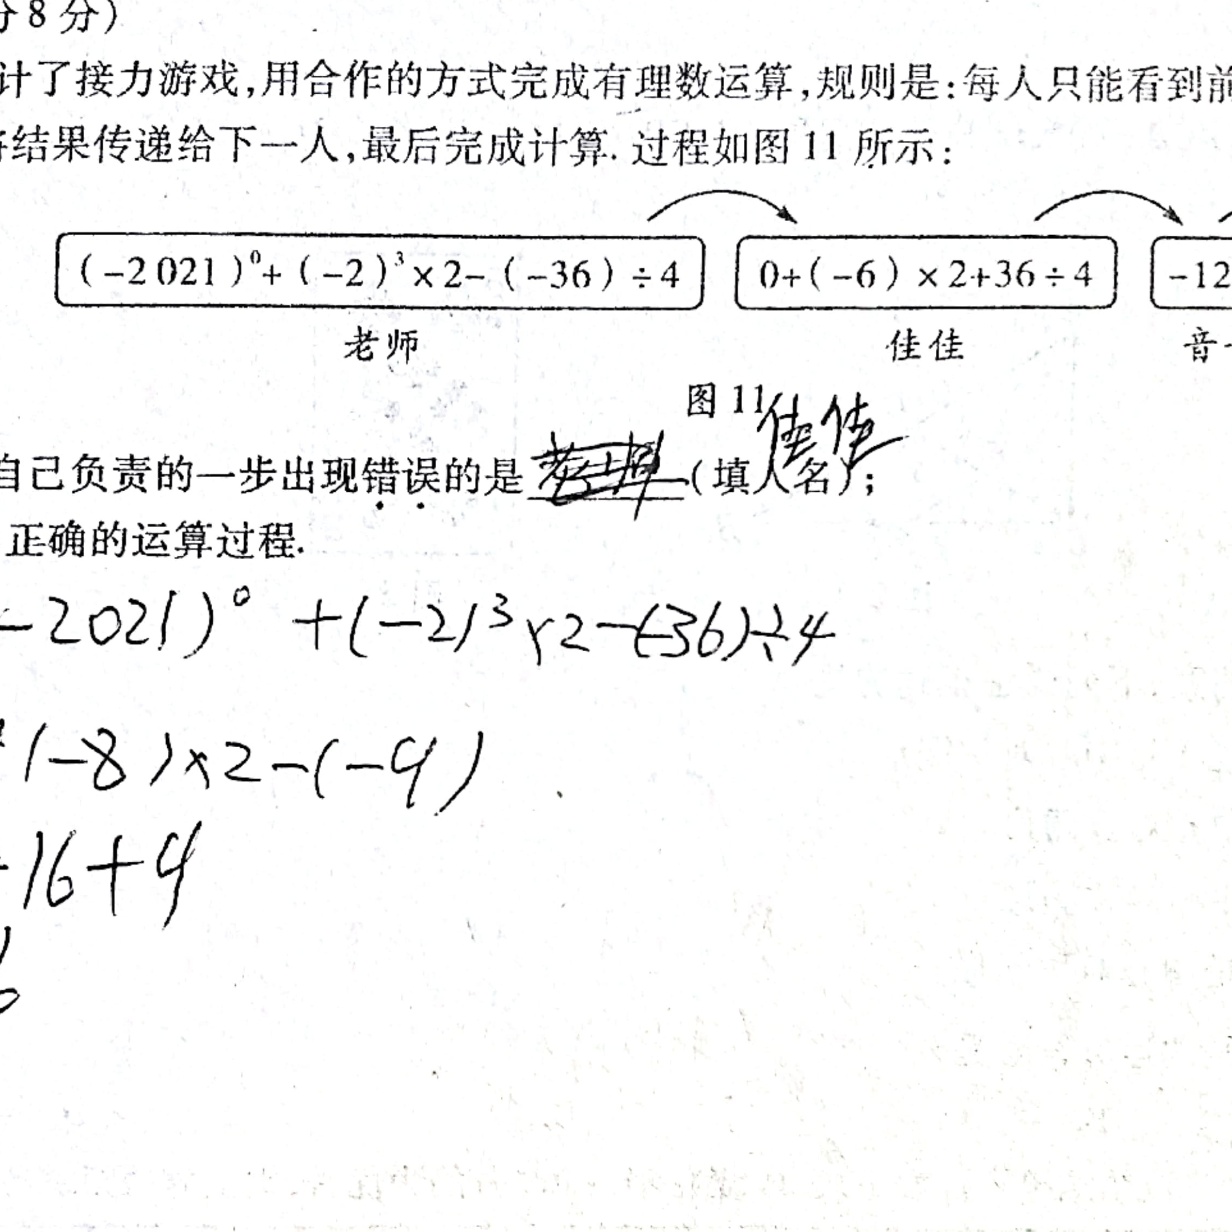 分8分)
计了接力游戏,用合作的方式完成有理数运算,规则是:每人只能看到前
将结果传递给下一人,最后完成计算. 过程如图 11 所示:
(-2021)⁰+(-2)³×2-(-36)÷4 0+(-6)×2+36÷4 -12
老师 佳佳 音
图 11
佳佳
自己负责的一步出现错误的是 (填人名);
正确的运算过程.
-2021)⁰ +(-2)³×2-(-36)÷4
(-8)×2-(-9)
16+9